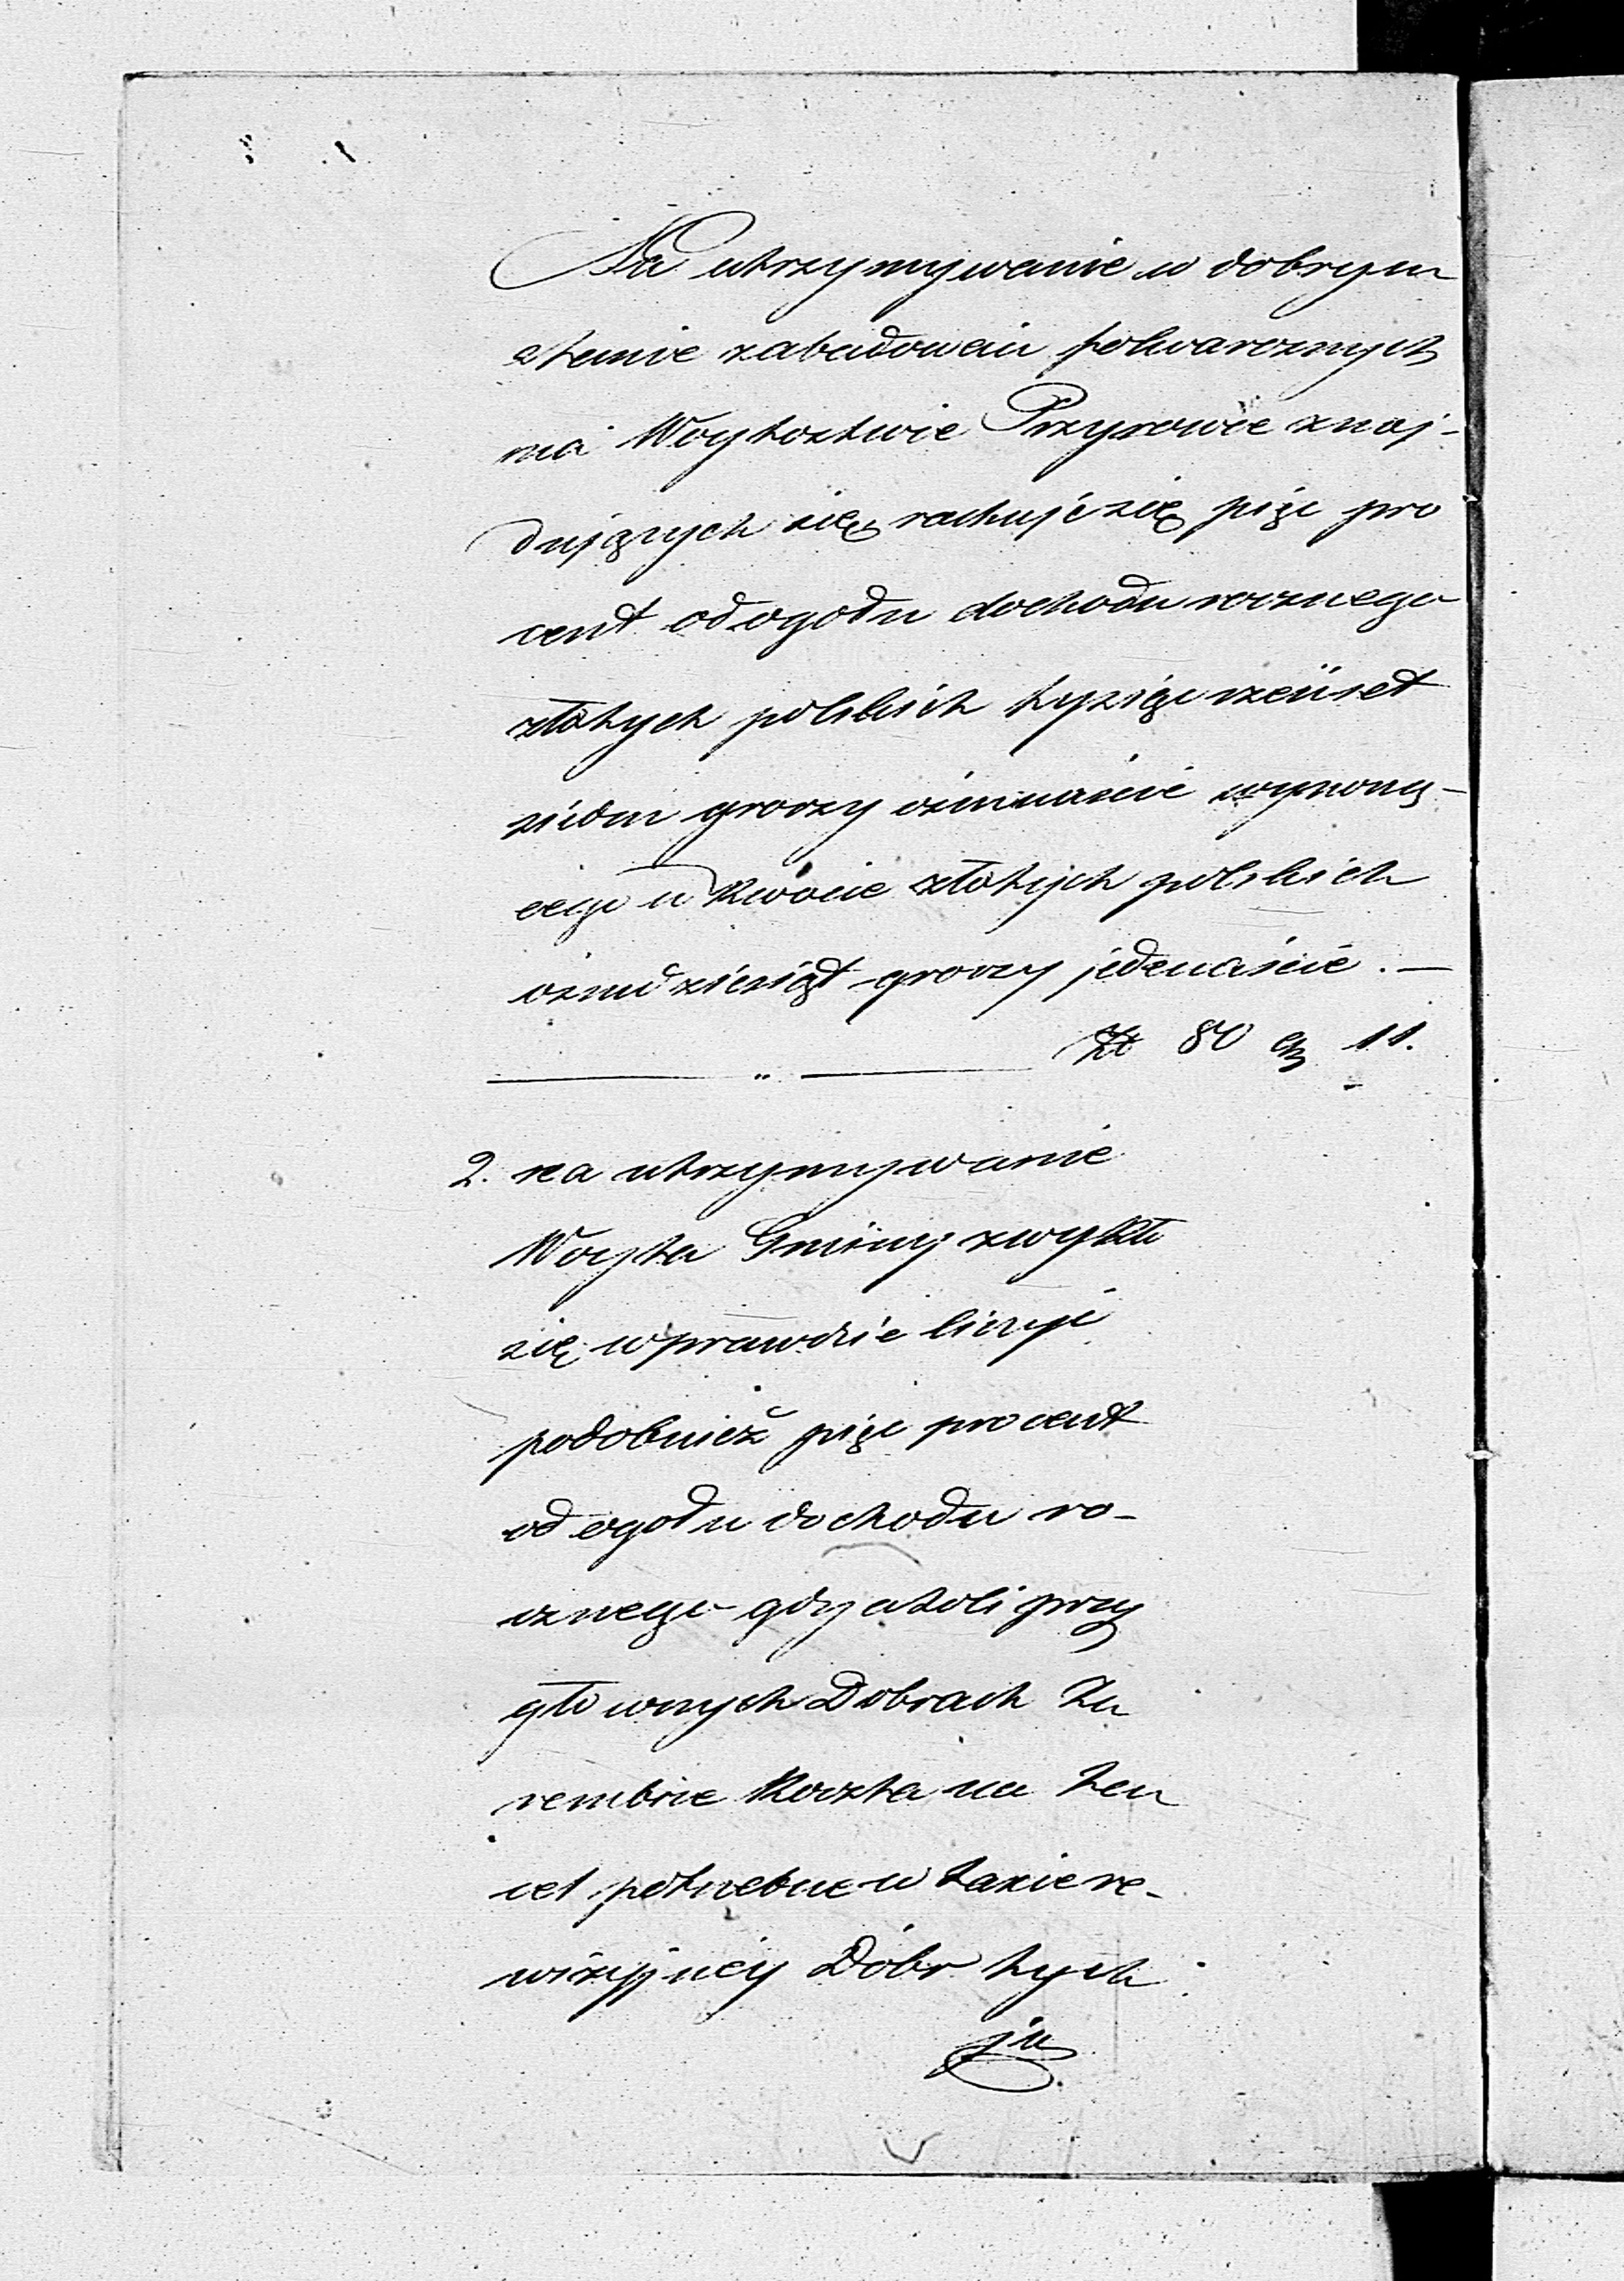 Na utrzymywanie w dobrym
stanie zabudowań folwarcznych
na Woytostwie Przyrowie znaj-
dujących się, rachuje się pięć pro
cent od ogołu dochodu rocznego
złotych polskich tysiąc sześćset
siedm groszy ośmnaście wynoszą-
cego w kwocie złotych polskich
ośmdziesiąt groszy jedenaście. —
Zł 80 gr 11.
2. na utrzymywanie
Woyta Gminy zwykło
się wprawdzie liczyć
podobnież pięć procent
od ogołu dochodu ro-
cznego gdy atoli przy
głownych Dobrach Zu
rembice Koszta na ten
cel potrzebne w taxie re-
wizyjney Dóbr tych
ju